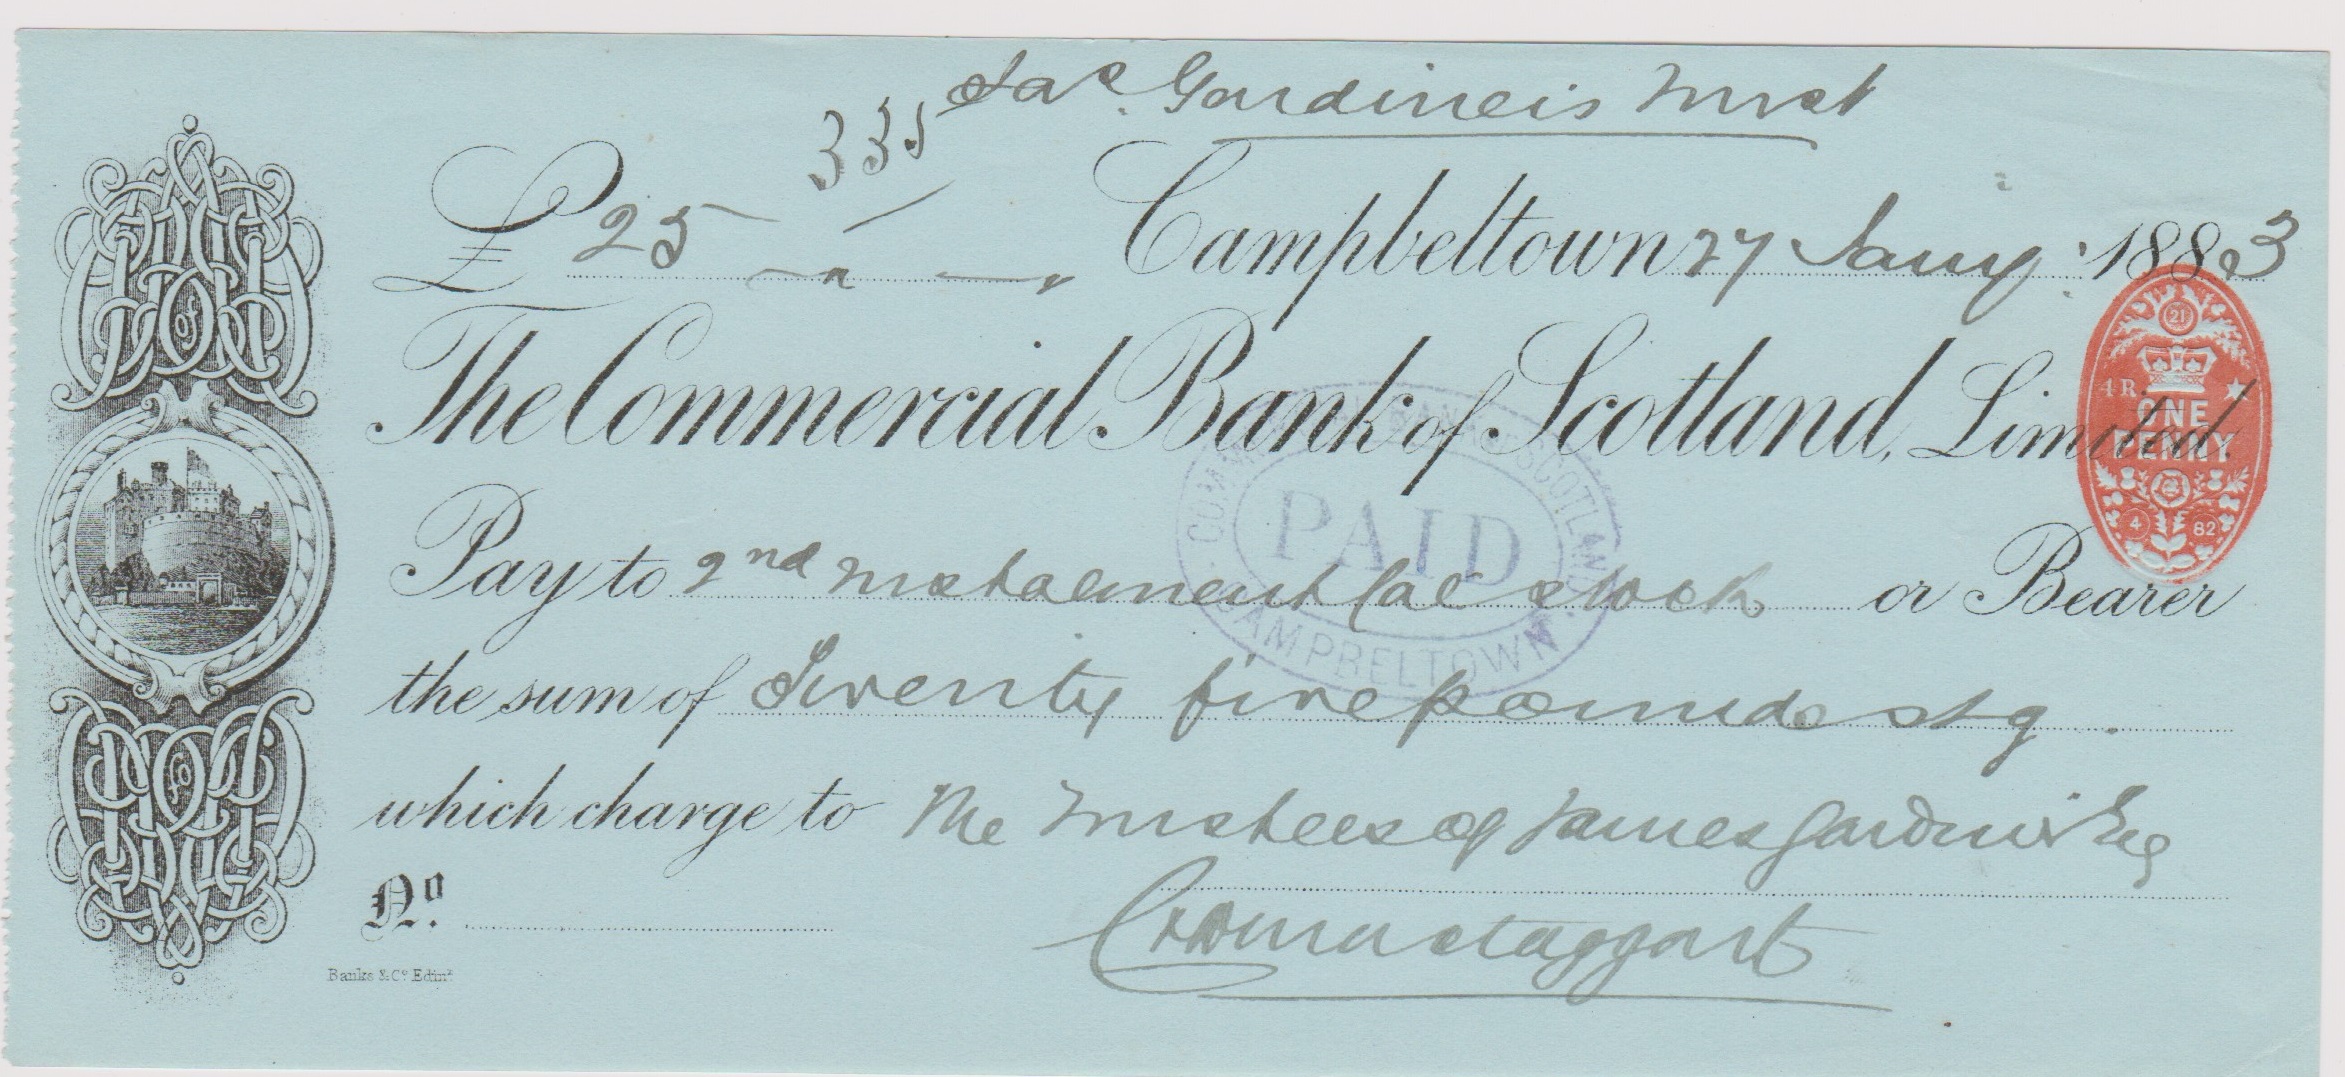 Jas. Gardiner's Trust
335
£ 25 " " Campbeltown 27 Jany. 1883
The Commercial Bank of Scotland, Limited.
21
4 R
ONE
PENNY
4 82
COMMERCIAL BANK OF SCOTLAND
PAID
CAMPBELTOWN
Pay to 2nd instalment Cal stock or Bearer
the sum of Twenty five pounds stg.
which charge to The Trustees of James Gardiner Esq
No.
Banks & Co. Edinr.